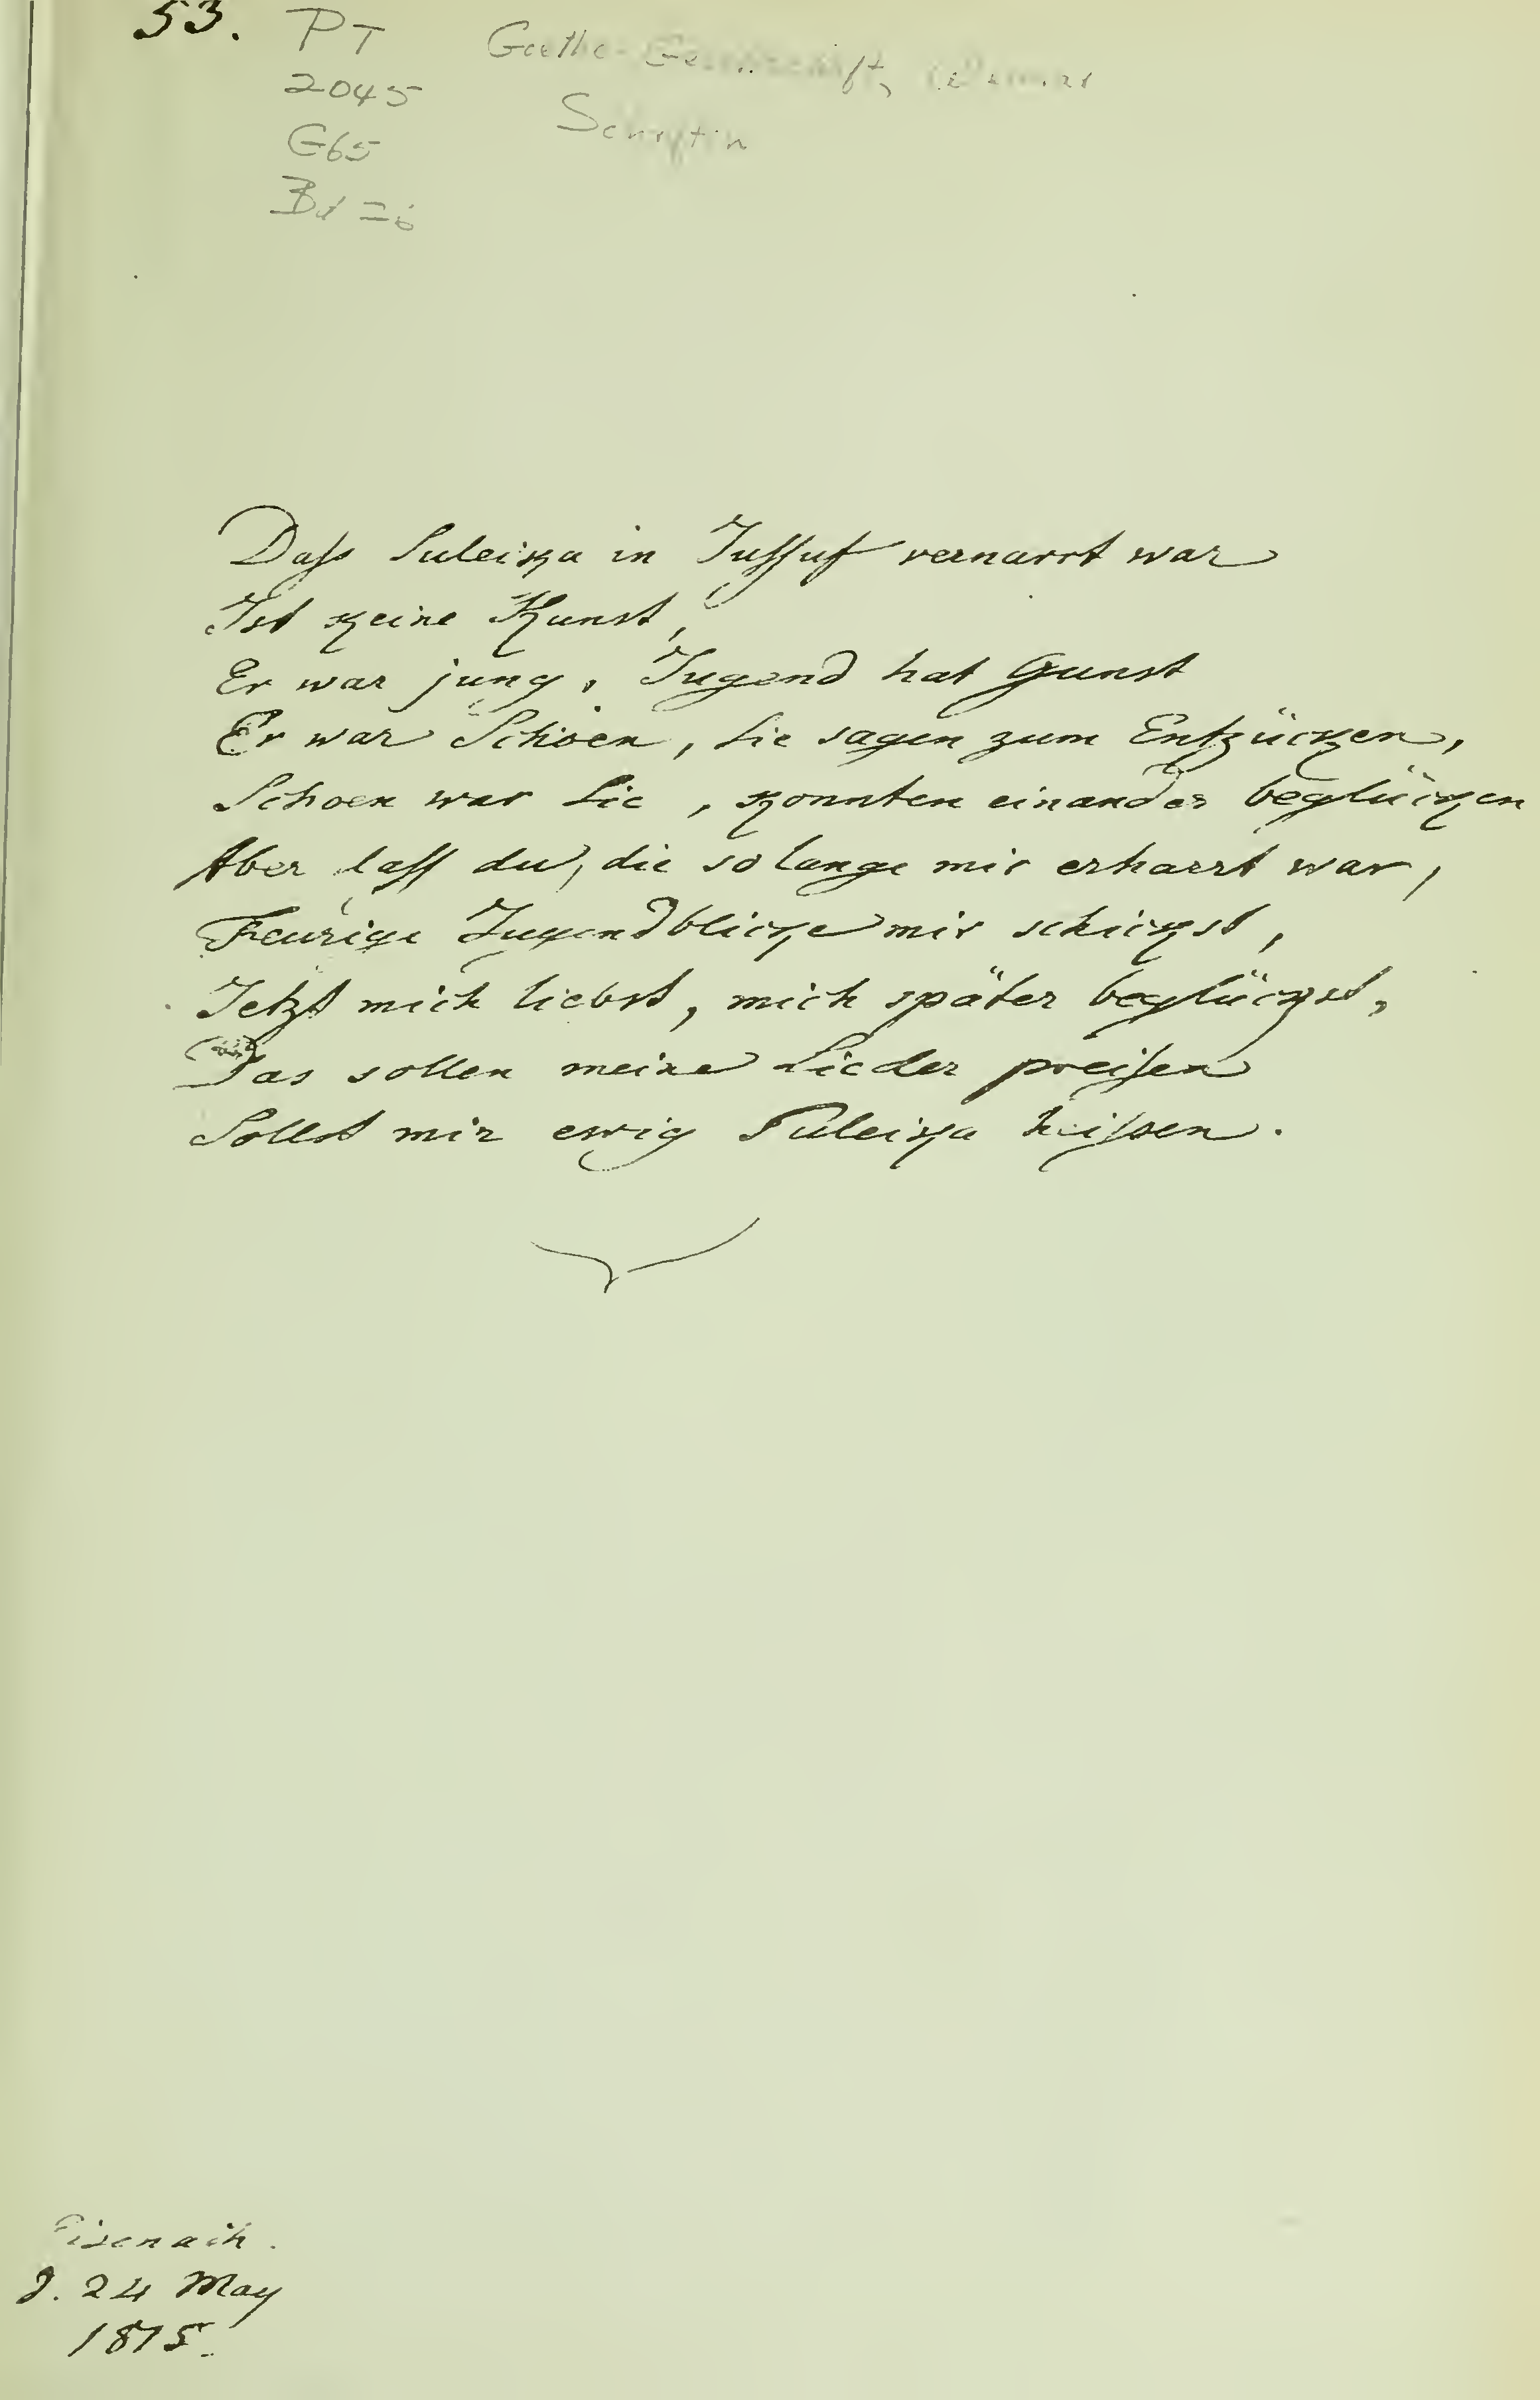 53.
PT Goethe-Gesellschaft, Weimar
2045 Schriften
G65
Bd
Dass Suleika in Jussuf vernarrt war
Ist keine Kunst,
Er war jung, Jugend hat Gunst
Er war Schoen, Sie sagen zum Entzücken,
Schoen war Sie, konnten einander beglücken
Aber dass du, die so lange mir erharrt war,
Feurige Jugendblicke mir schickst,
Jetzt mich liebst, mich später beglückst,
Das sollen meine Lieder preisen
Sollst mir ewig Suleika heissen.
Eisenach.
d. 24 May
1815.